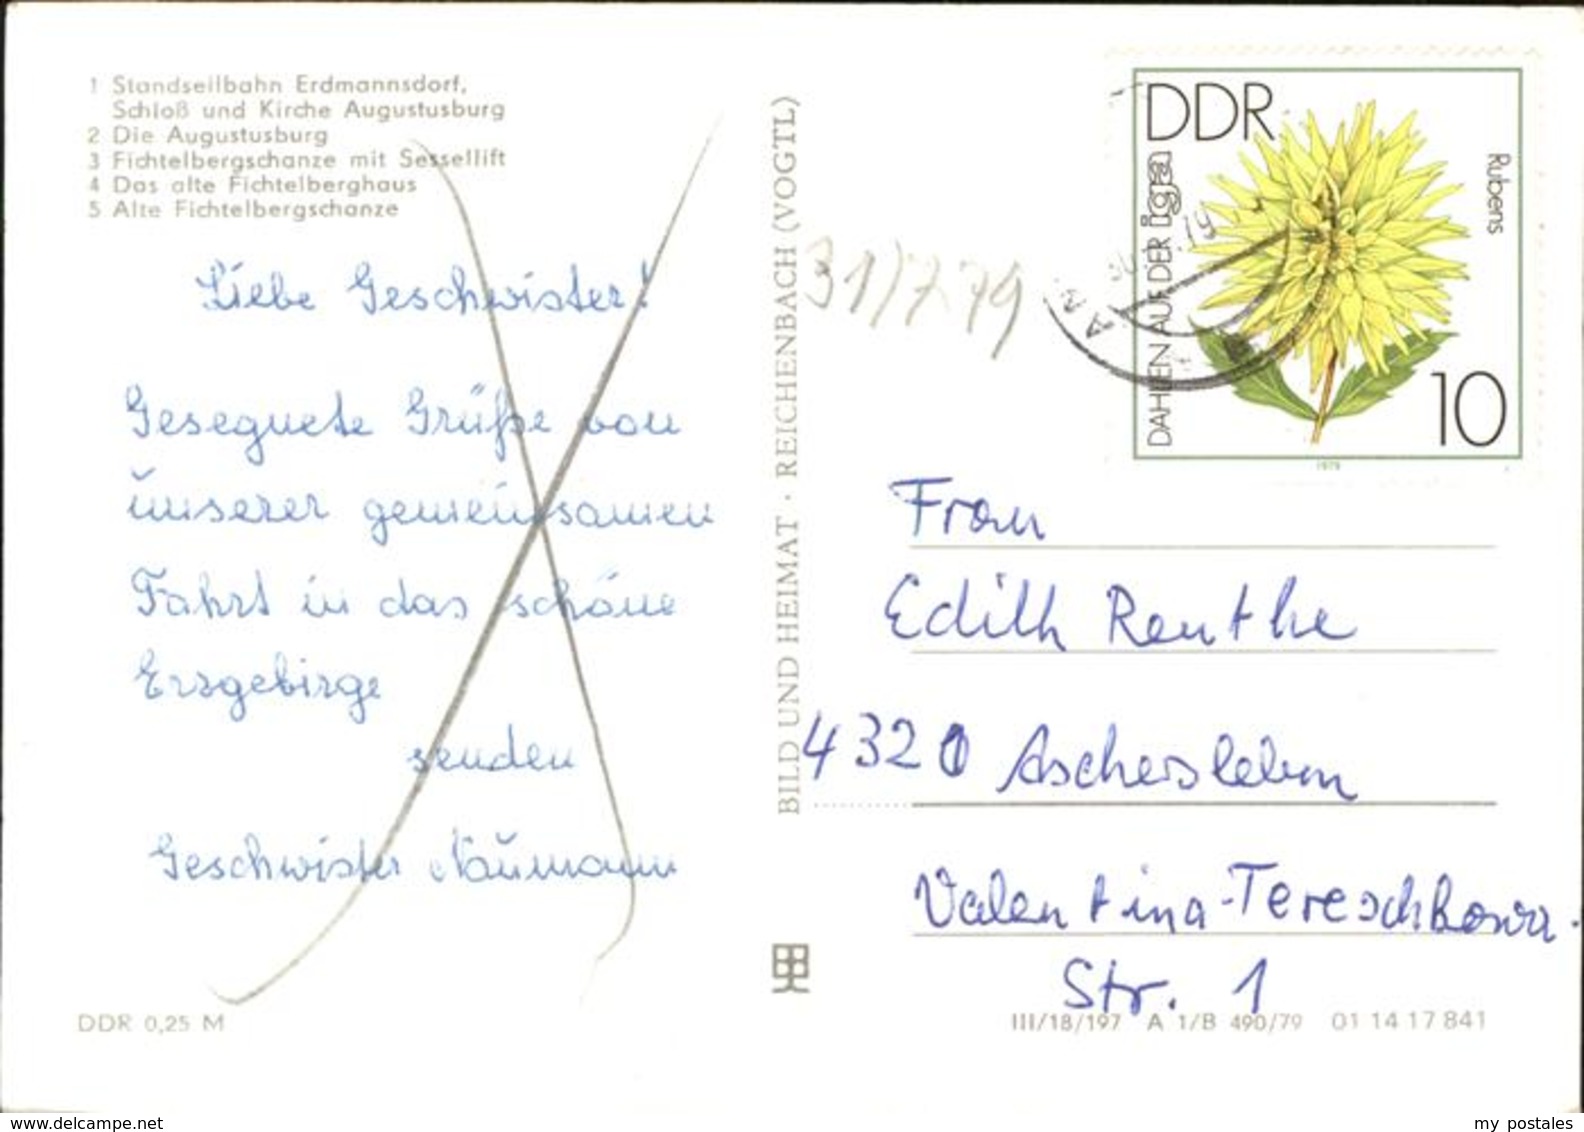 1 Standseilbahn Erdmannsdorf,
Schloß und Kirche Augustusburg
2 Die Augustusburg
3 Fichtelbergschanze mit Sessellift
4 Das alte Fichtelberghaus
5 Alte Fichtelbergschanze
Liebe Geschwister!
Gesegnete Grüße von
unserer gemeinsamen
Fahrt in das schöne
Erzgebirge
senden
Geschwister Naumann
DDR 0,25 M
BILD UND HEIMAT · REICHENBACH (VOGTL)
31/7.79
DDR
DAHLIEN AUF DER iga
Rubens
10
1979
Frau
Edith Renthe
4320 Aschersleben
Valentina-Tereschkowa-
Str. 1
III/18/197 A 1/B 490/79 01 14 17 841
www.delcampe.net
my postales